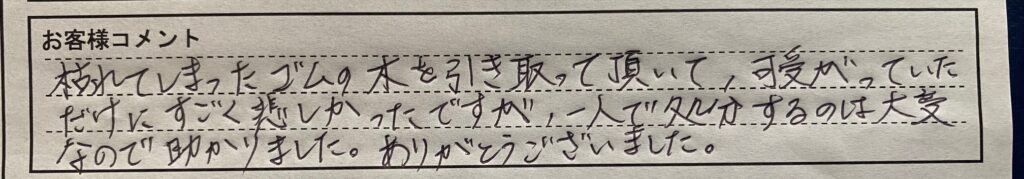 お客様コメント
枯れてしまったゴムの木を引き取って頂いて、可愛がっていた
だけにすごく悲しかったですが、一人で処分するのは大変
なので助かりました。ありがとうございました。